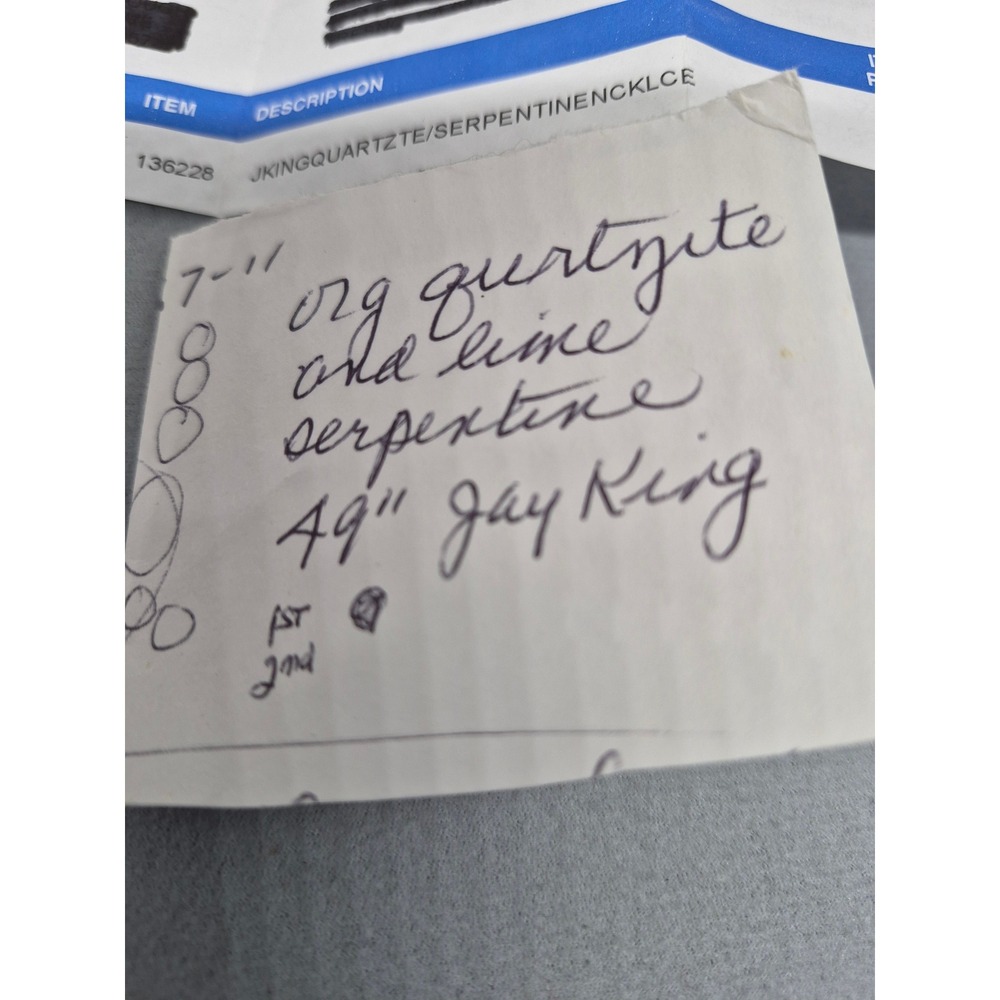 ITEM DESCRIPTION
136228 JKINGQUARTZTE/SERPENTINENCKLCE
7-11 org quartzite
and lime
serpentine
49" Jay King
1ST
2nd